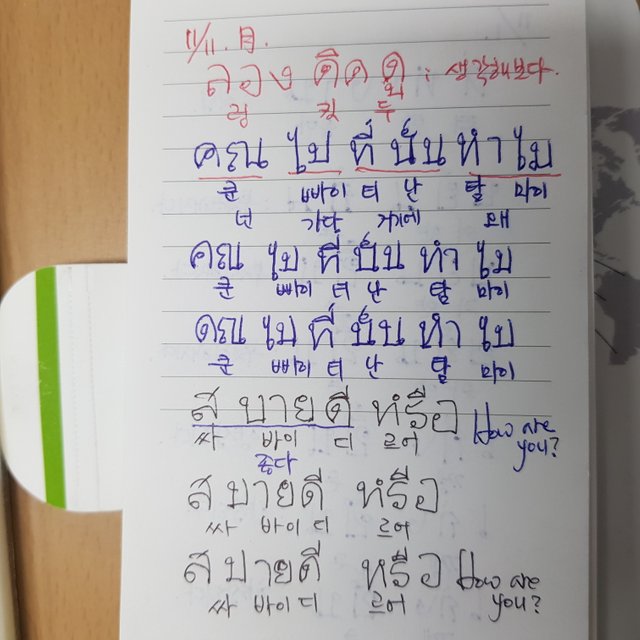 11/11. 月.
ลอง คิด ดู : 생각해보다.
렁 킷 두
คุณ ไป ที่ นั่น ทำไม
쿤 빠이 티 난 탐 마이
넌 가다 거기에 왜
คุณ ไป ที่ นั่น ทำ ไม
쿤 빠이 티 난 탐 마이
คุณ ไป ที่ นั่น ทำ ไม
쿤 빠이 티 난 탐 마이
สบายดี หรือ How are you?
싸 바이 디 르어
좋다
สบายดี หรือ
싸 바이 디 르어
สบายดี หรือ How are you?
싸 바이 디 르어